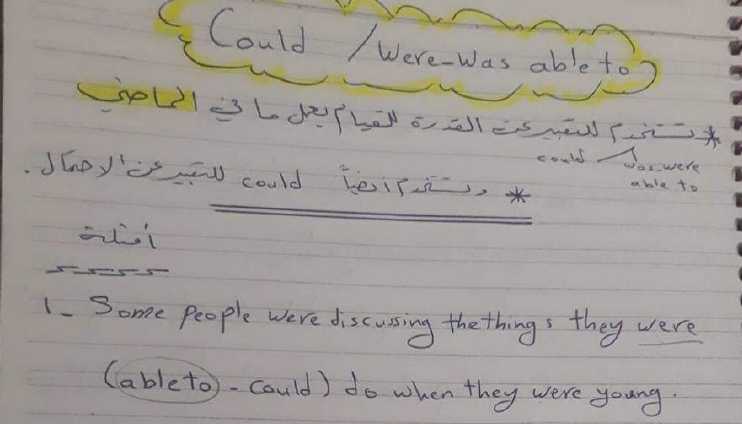 Could / were-was able to
* تستخدم للتعبير عن القدرة للقيام بعمل ما في الماضي
could / was were
able to
* وتستخدم ايضاً could للتعبير عن الاحتمال.
أمثلة
1- Some people were discussing the things they were
(able to - could) do when they were young.